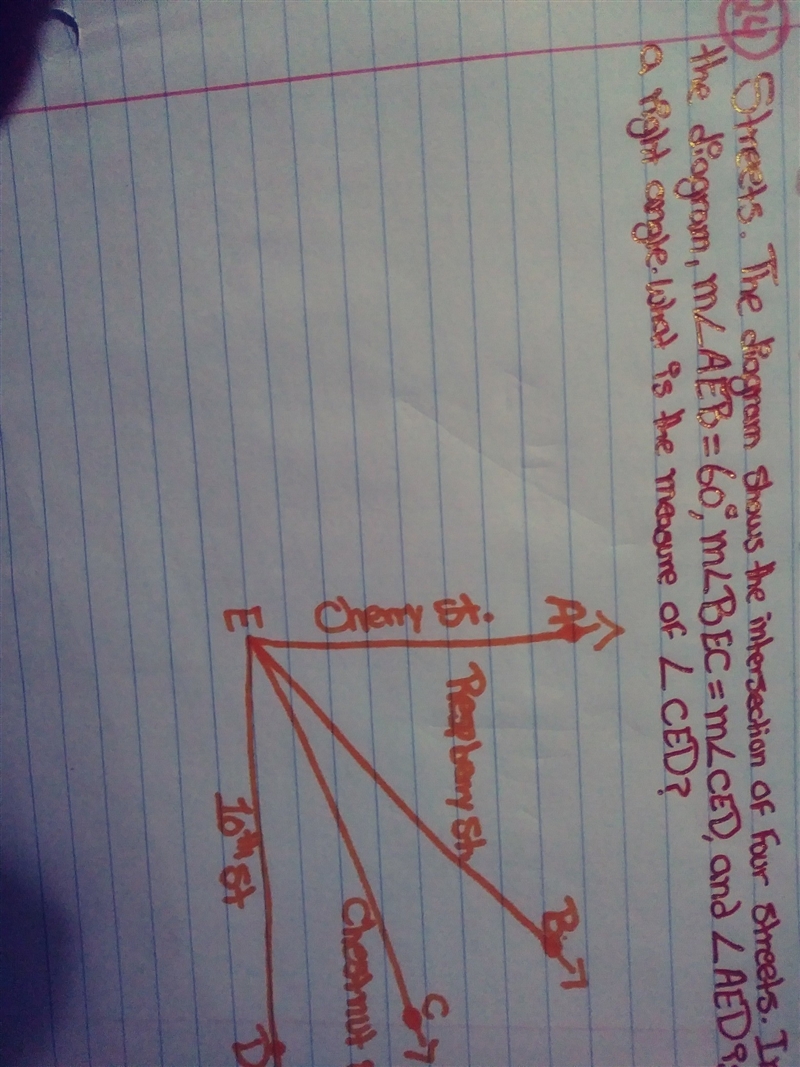 24 Streets. The diagram shows the intersection of four streets. In
the diagram, m∠AEB = 60°, m∠BEC = m∠CED, and ∠AED is
a right angle. What is the measure of ∠CED?
A
Cherry St.
E
Raspberry St.
B
Chestnut
C
10th St
D